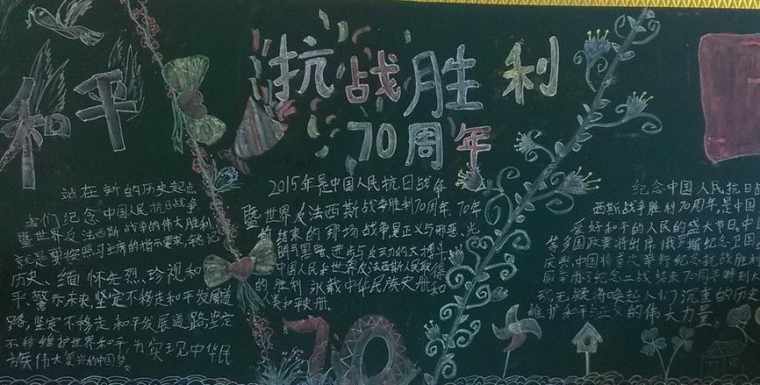 和平
抗战胜利
70周年
站在新的历史起点
我们纪念中国人民抗日战争
暨世界反法西斯战争的伟大胜利
历史、缅怀先烈、珍视和
平、警示未来,坚定不移走和平发展道
路,坚定不移走和平发展道路,坚定
不移维护世界和平,为实现中华民
族伟大复兴的中国梦。
2015年是中国人民抗日战争
暨世界反法西斯战争胜利70周年,70年
前结束的那场战争是正义与邪恶,光
明与黑暗,进步与反动的大搏斗
中国人民和世界反法西斯人民取得
的胜利 永载中华民族史册和
人类和平史册.
70
纪念中国人民抗日战
西斯战争胜利70周年,是中国
爱好和平的人民的盛大节日,中
等多国政要将出席俄罗斯纪念卫国
庆典,中国将首次举行纪念抗战胜利
纪念二战结束70周年
将唤起人们沉重的历史
维护和平正义的伟大力量.